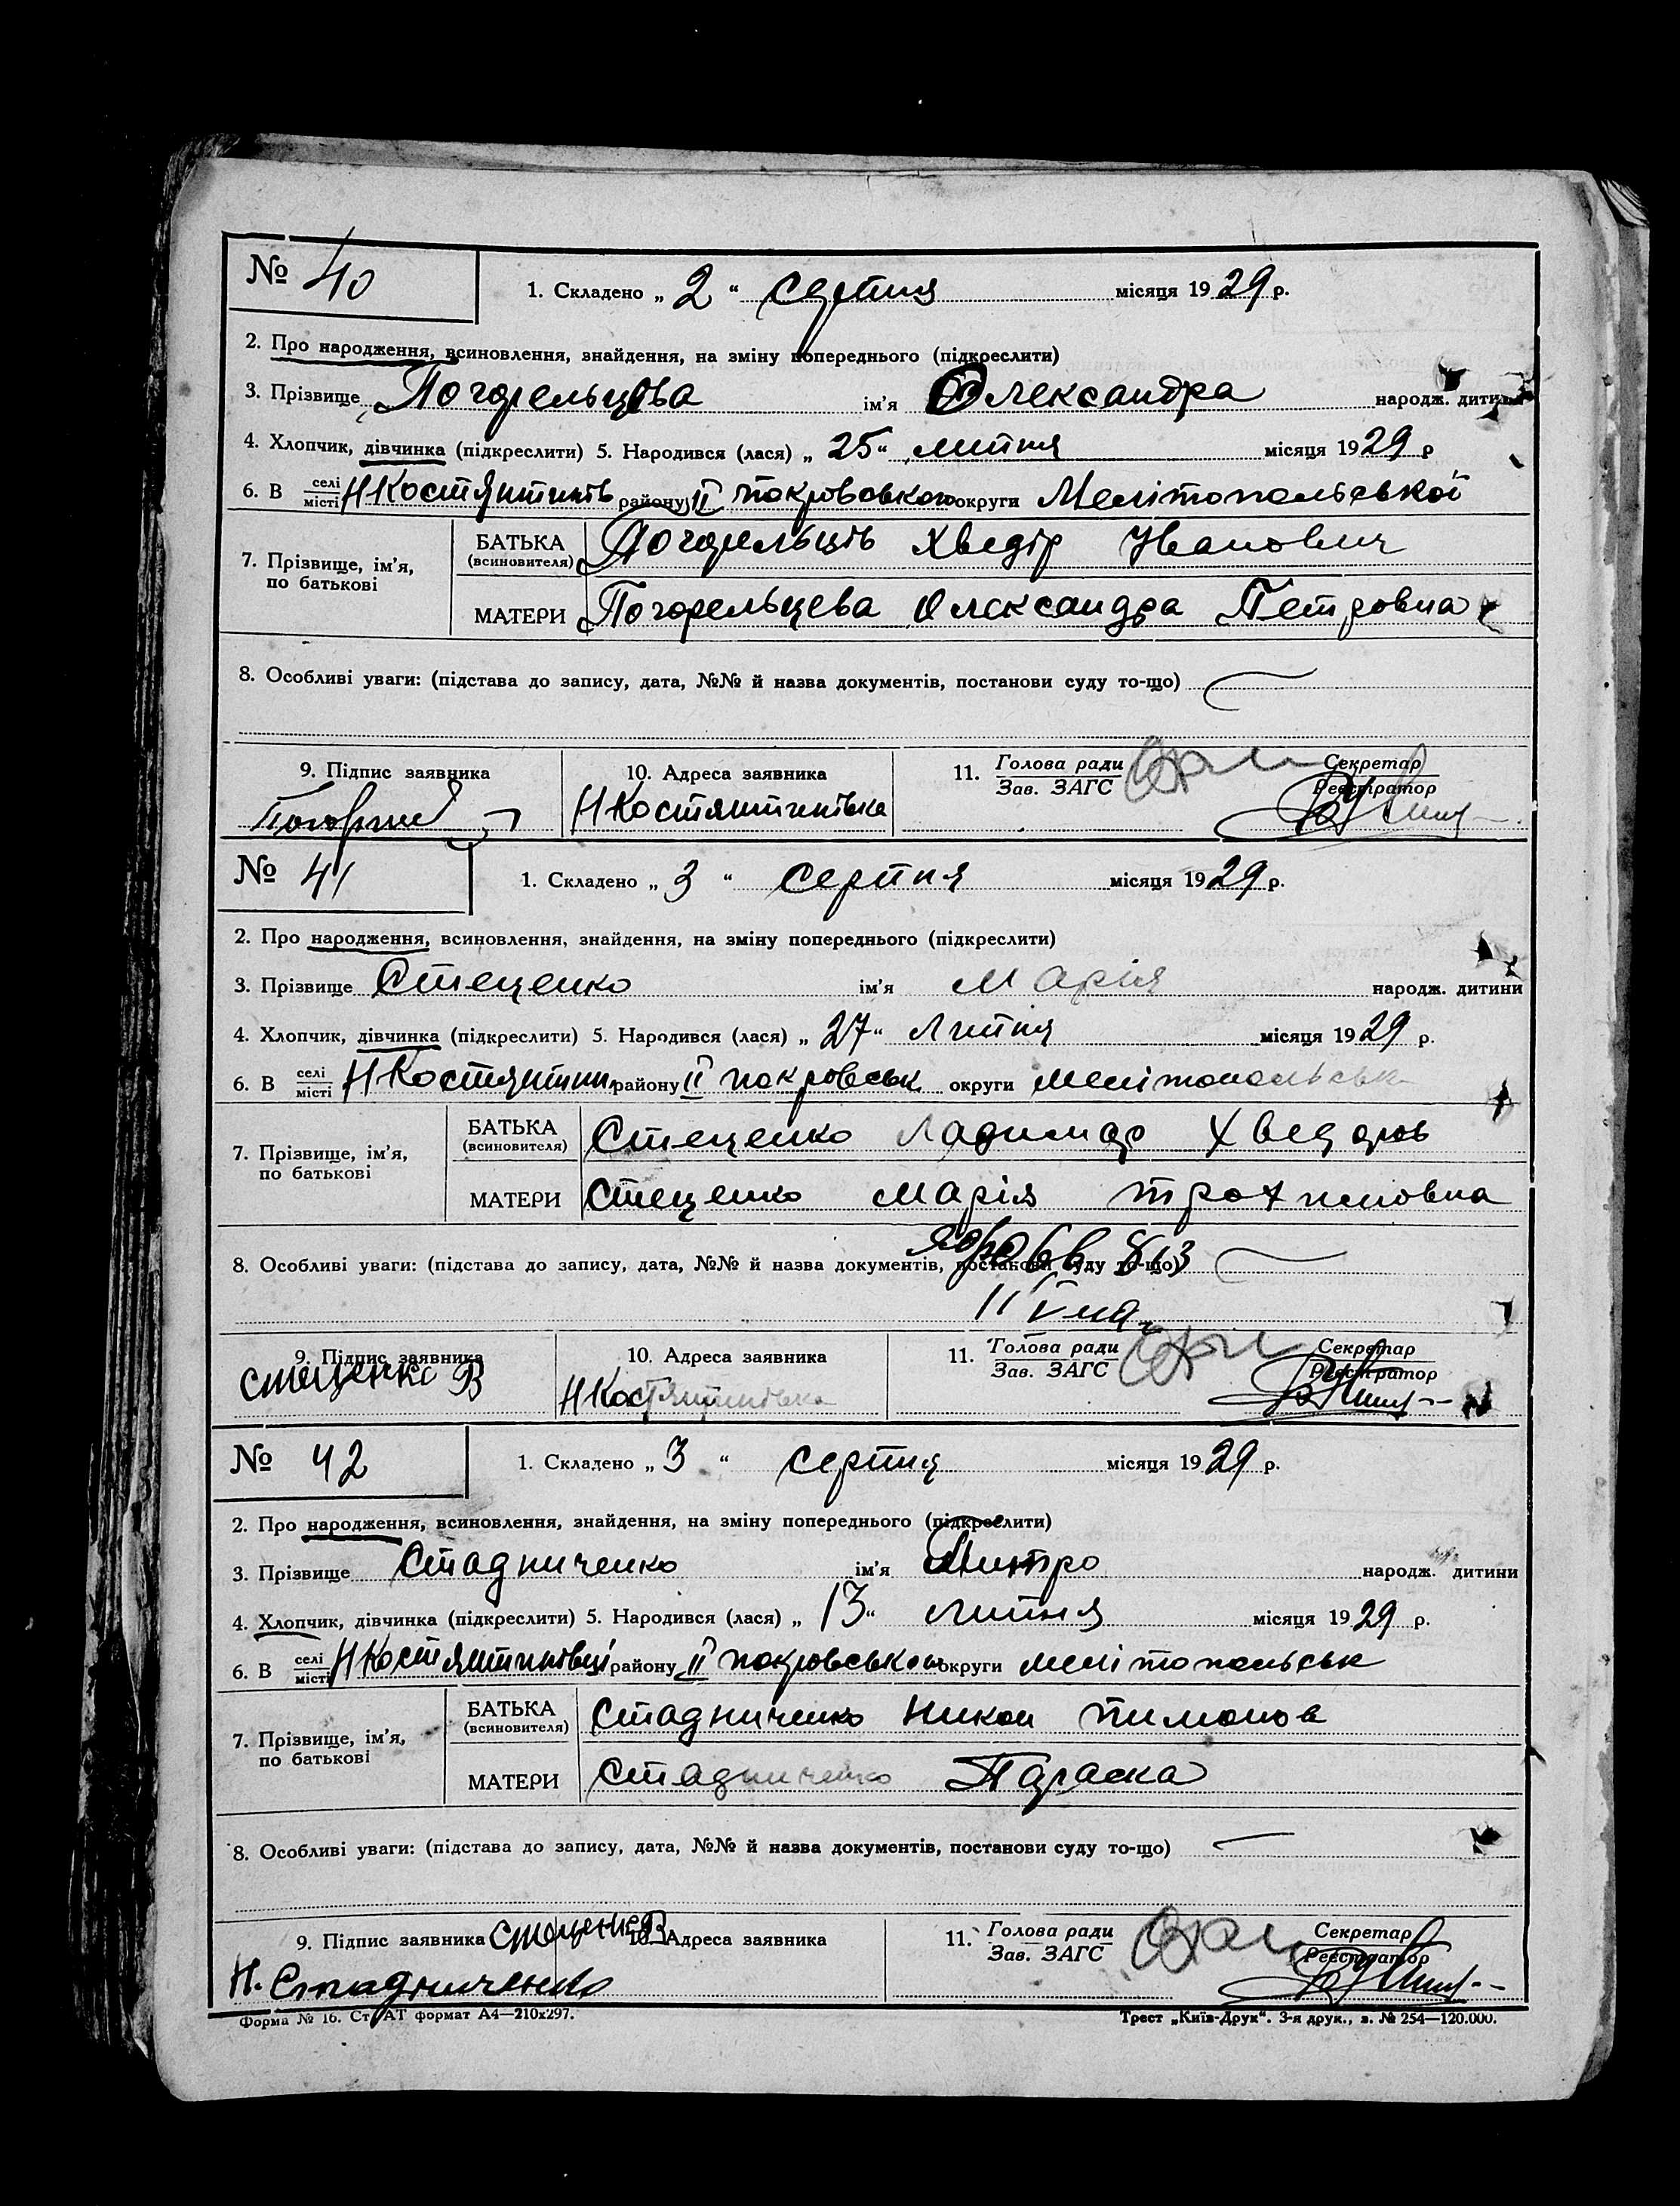 № 40 1. Складено „ 2 “ серпня місяця 1929 р.
2. Про народження, всиновлення, знайдення, на зміну попереднього (підкреслити)
3. Прізвище Погорельцева ім'я Олександра народж. дитини
4. Хлопчик, дівчинка (підкреслити) 5. Народився (лася) „ 25 “ липня місяця 1929 р
6. В селі місті району II Покровського округи Мелітопольської
7. Прізвище, ім'я, по батькові БАТЬКА (всиновителя) Погорельців Хведір Иванович
МАТЕРИ Погорельцева Олександра Петровна
8. Особливі уваги: (підстава до запису, дата, №№ й назва документів, постанови суду то-що)
9. Підпис заявника 10. Адреса заявника 11. Голова ради Зав. ЗАГС Секретар Реєстратор
Н Костянтинівка
№ 41 1. Складено „ 3 “ серпня місяця 1929 р.
2. Про народження, всиновлення, знайдення, на зміну попереднього (підкреслити)
3. Прізвище Стеценко ім'я Марія народж. дитини
4. Хлопчик, дівчинка (підкреслити) 5. Народився (лася) „ 27 “ Липня місяця 1929 р.
6. В селі місті Н Костянтин району II покровськ округи мелітопольськ
7. Прізвище, ім'я, по батькові БАТЬКА (всиновителя) Стеценко Ладимир
МАТЕРИ Стеценко Марія
8. Особливі уваги: (підстава до запису, дата, №№ й назва документів, постанови суду то-що)
9. Підпис заявника 10. Адреса заявника 11. Голова ради Зав. ЗАГС Секретар Реєстратор
Стеценко В Н Костянтинівка
№ 42 1. Складено „ 3 “ серпня місяця 1929 р.
2. Про народження, всиновлення, знайдення, на зміну попереднього (підкреслити)
3. Прізвище Стадниченко ім'я Дмитро народж. дитини
4. Хлопчик, дівчинка (підкреслити) 5. Народився (лася) „ 13 “ липня місяця 1929 р.
6. В селі місті Н Костянтинівці району II покровського округи мелітопольськ
7. Прізвище, ім'я, по батькові БАТЬКА (всиновителя) Стадниченко Никон пимонов
МАТЕРИ Стадниченко Параска
8. Особливі уваги: (підстава до запису, дата, №№ й назва документів, постанови суду то-що)
9. Підпис заявника Стеценко В 10. Адреса заявника 11. Голова ради Зав. ЗАГС Секретар Реєстратор
Н. Стадниченко
Форма № 16. Ст. АТ формат А4—210x297. Трест „Київ-Друк“. 3-я друк., з. № 254—120.000.